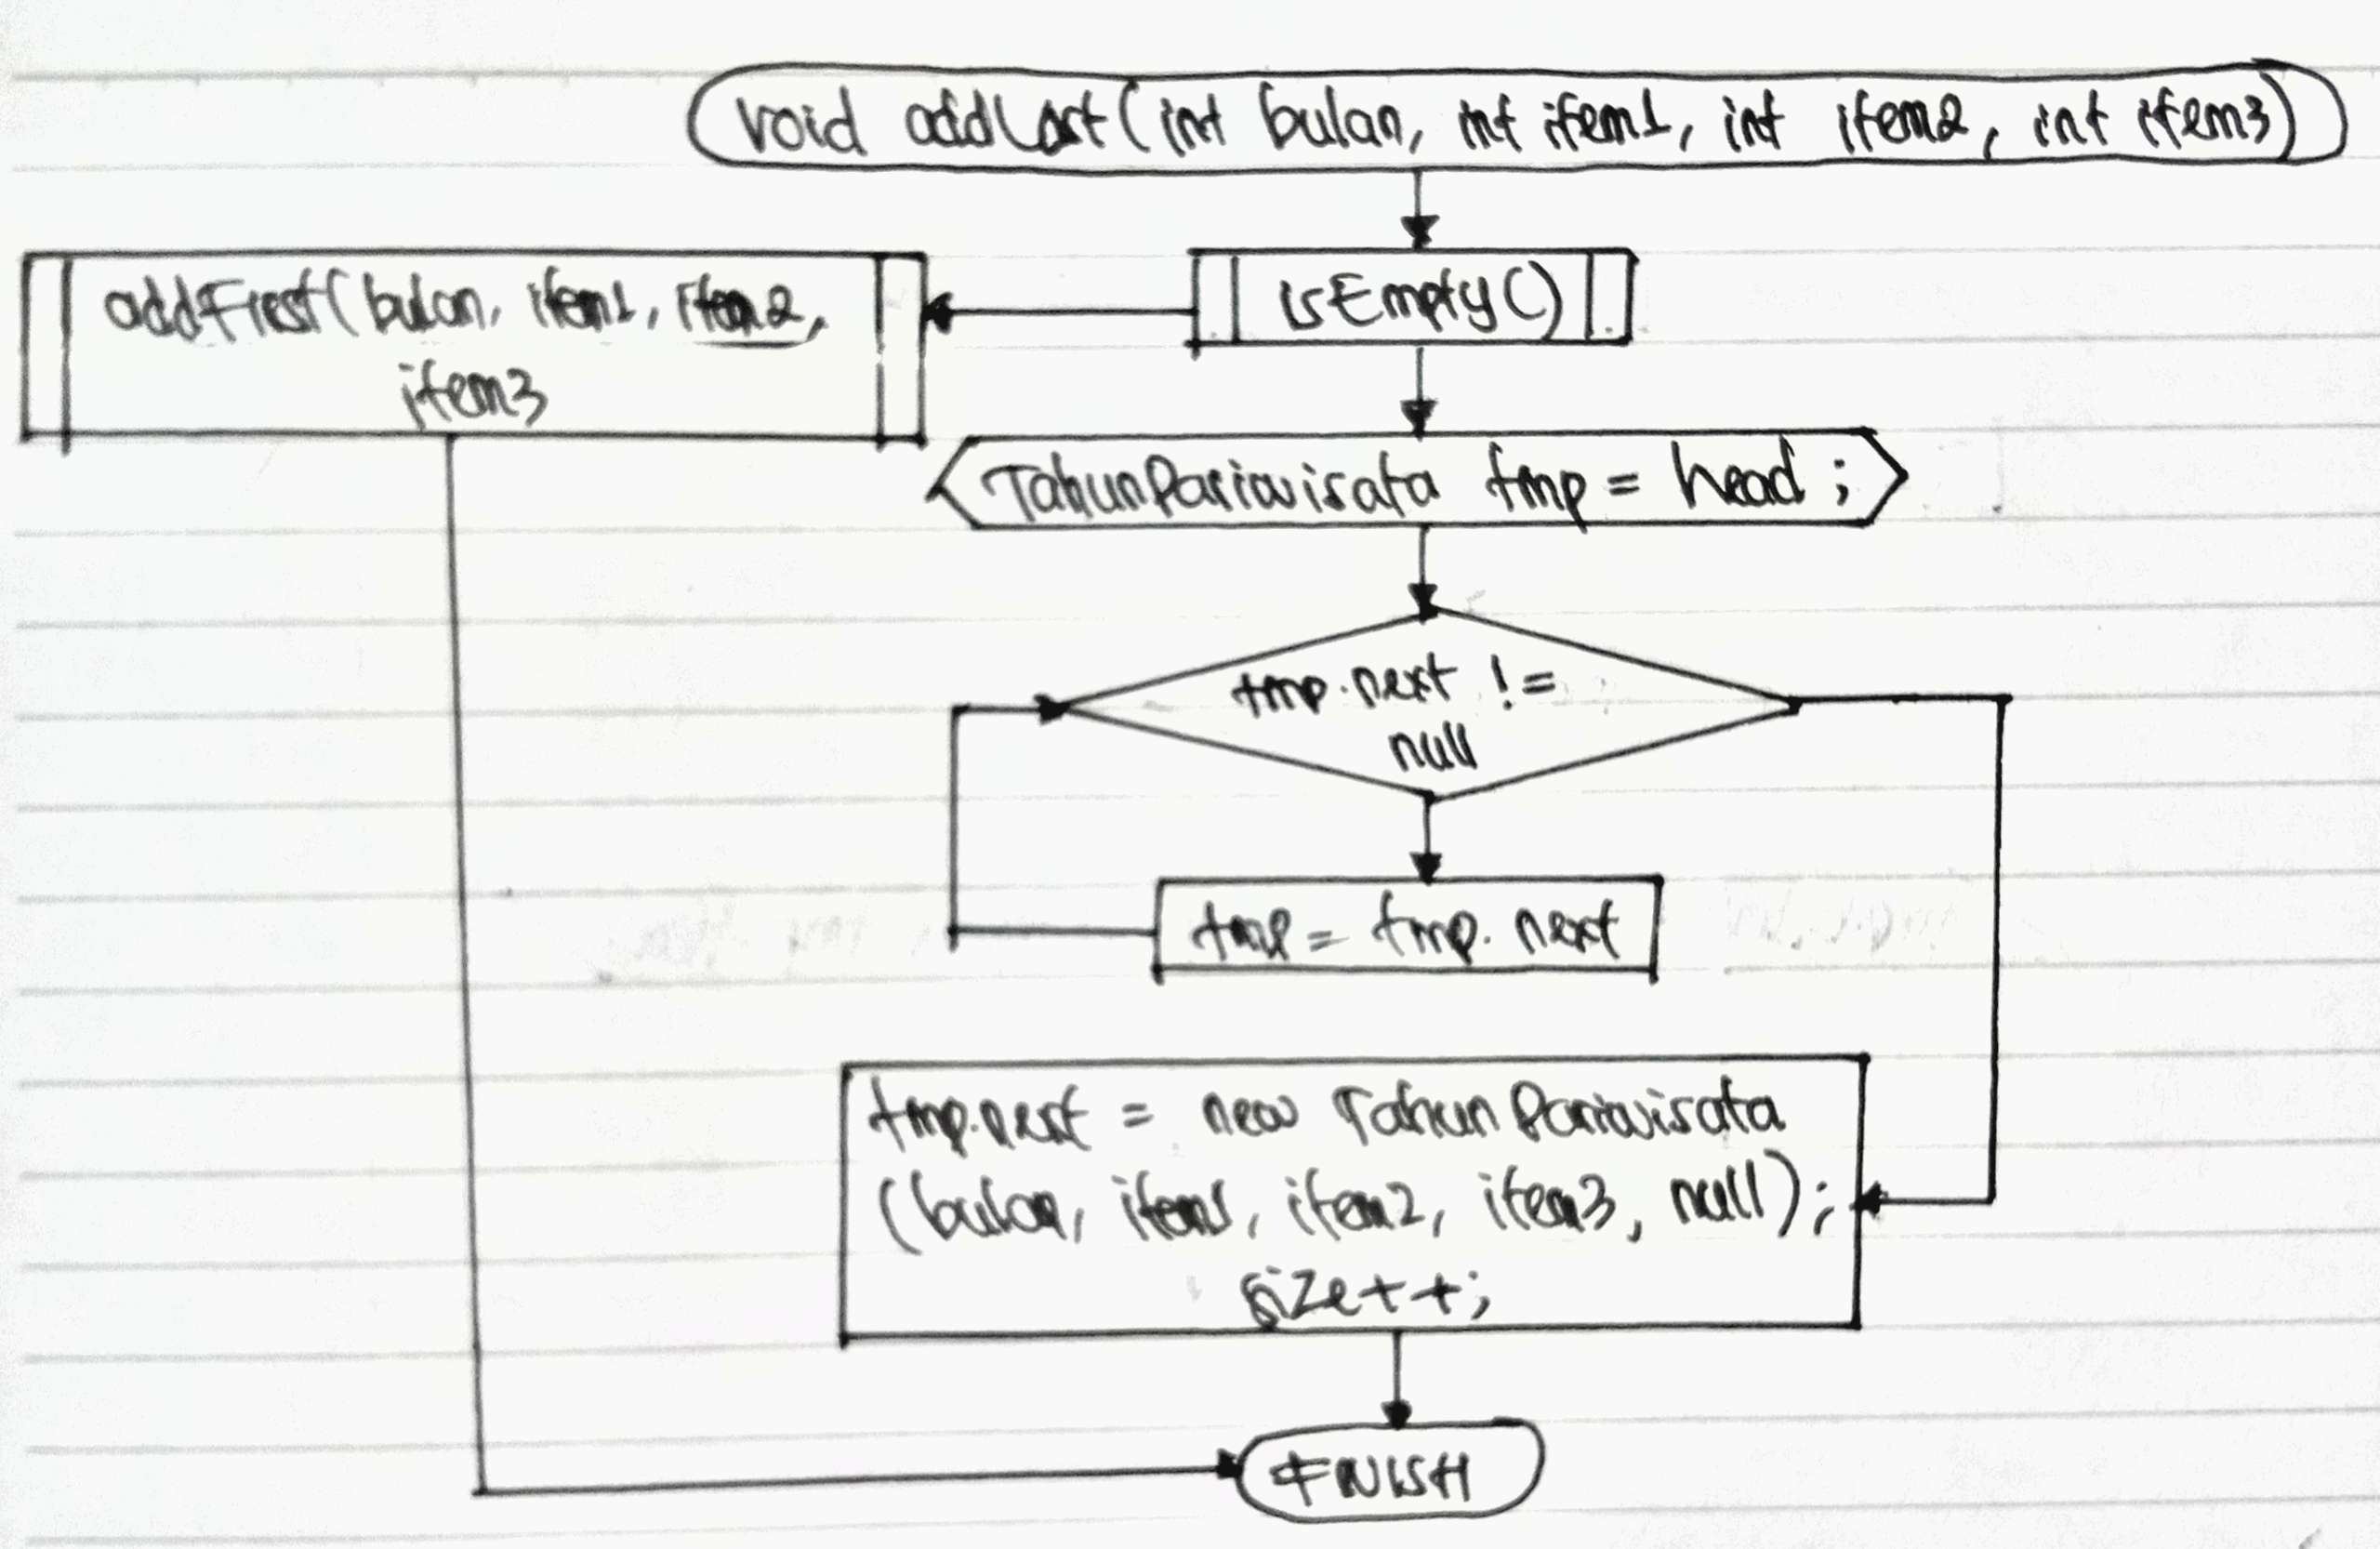 void addLast(int bulan, int item1, int item2, int item3)
isEmpty()
addFirst(bulan, item1, item2,
item3
TahunPariwisata tmp = head ;
tmp.next !=
null
tmp = tmp.next
tmp.next = new TahunPariwisata
(bulan, item1, item2, item3, null);
size++;
FINISH